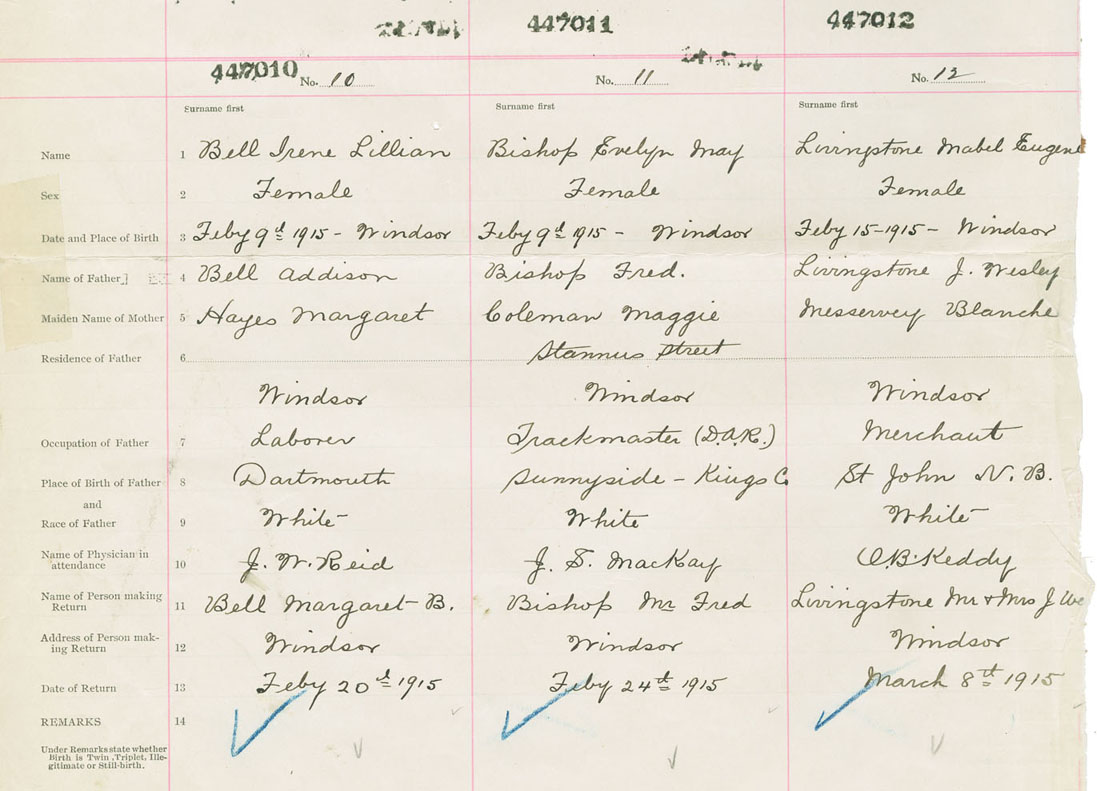 447011 447012
447010 No. 10 No. 11 No. 12
Surname first Surname first Surname first
Name 1 Bell Irene Lillian Bishop Evelyn May Livingstone Mabel Eugene
Sex 2 Female Female Female
Date and Place of Birth 3 Feby 9th 1915 - Windsor Feby 9th 1915 - Windsor Feby 15-1915 - Windsor
Name of Father 4 Bell Addison Bishop Fred. Livingstone J. Wesley
Maiden Name of Mother 5 Hayes Margaret Coleman Maggie Messervey Blanche
Residence of Father 6 Stannus Street
Windsor Windsor Windsor
Occupation of Father 7 Laborer Trackmaster (D.A.R.) Merchant
Place of Birth of Father 8 Dartmouth Sunnyside - Kings Co St John N.B.
and
Race of Father 9 White White White
Name of Physician in
attendance 10 J. W. Reid J. S. MacKay O.B. Keddy
Name of Person making
Return 11 Bell Margaret B. Bishop Mr Fred Livingstone Mr & Mrs J We
Address of Person mak-
ing Return 12 Windsor Windsor Windsor
Date of Return 13 Feby 20th 1915 Feby 24th 1915 March 8th 1915
REMARKS 14
Under Remarks state whether
Birth is Twin, Triplet, Ille-
gitimate or Still-birth.